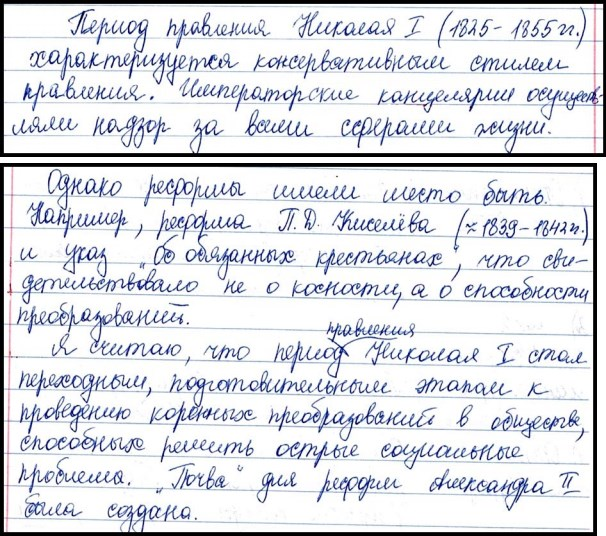 Период правления Николая I (1825 - 1855 гг.)
характеризуется консервативным стилем
правления. Императорские канцелярии осуществ-
ляли надзор за всеми сферами жизни.
Однако реформы имели место быть.
Например, реформа П.Д. Киселёва (≈1839-1842 гг.)
и указ "Об обязанных крестьянах", что сви-
детельствовало не о косности, а о способности
преобразований.
правления
Я считаю, что период Николая I стал
переходным, подготовительным этапам к
проведению коренных преобразований в обществе,
способных решить острые социальные
проблемы. "Почва" для реформ Александра II
была создана.